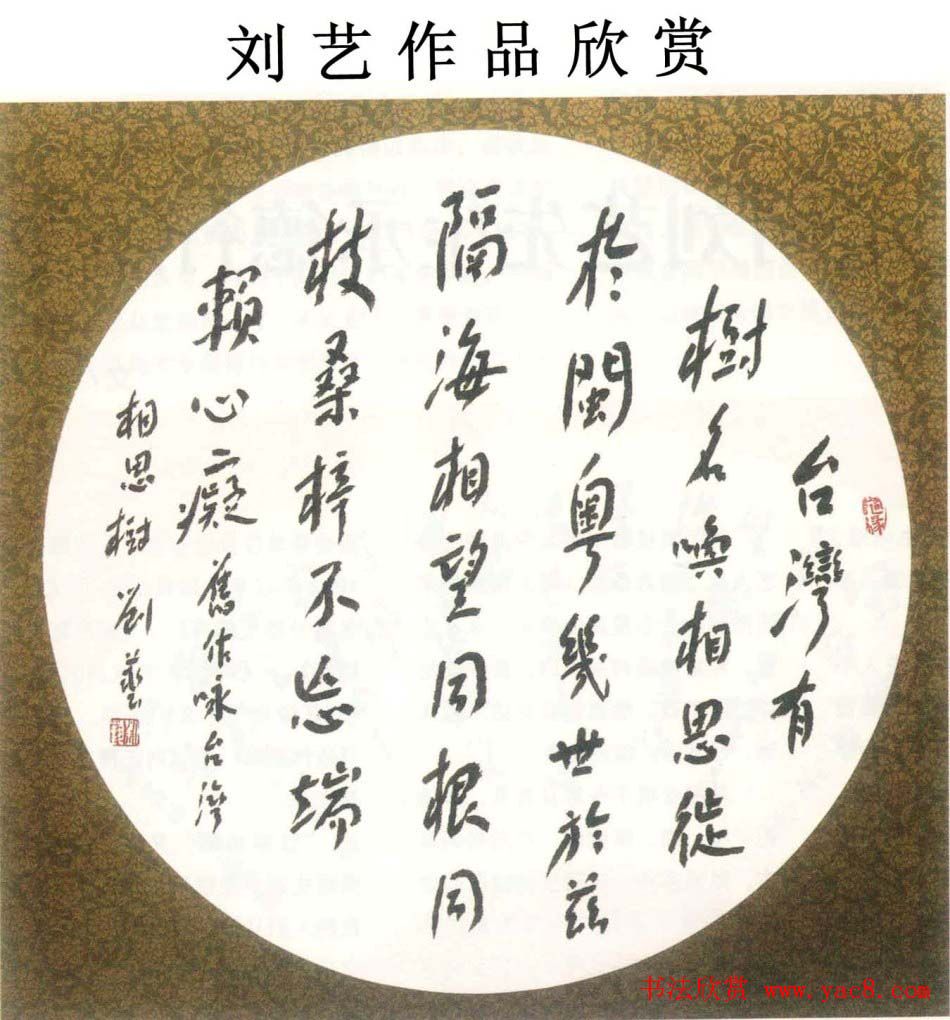 刘艺作品欣赏
台灣有
樹名喚相思徙
於閩粵幾世於茲
隔海相望同根同
枝桑梓不忘端
賴心癡 舊作咏台灣
相思樹 劉藝
书法欣赏 www.yac8.com